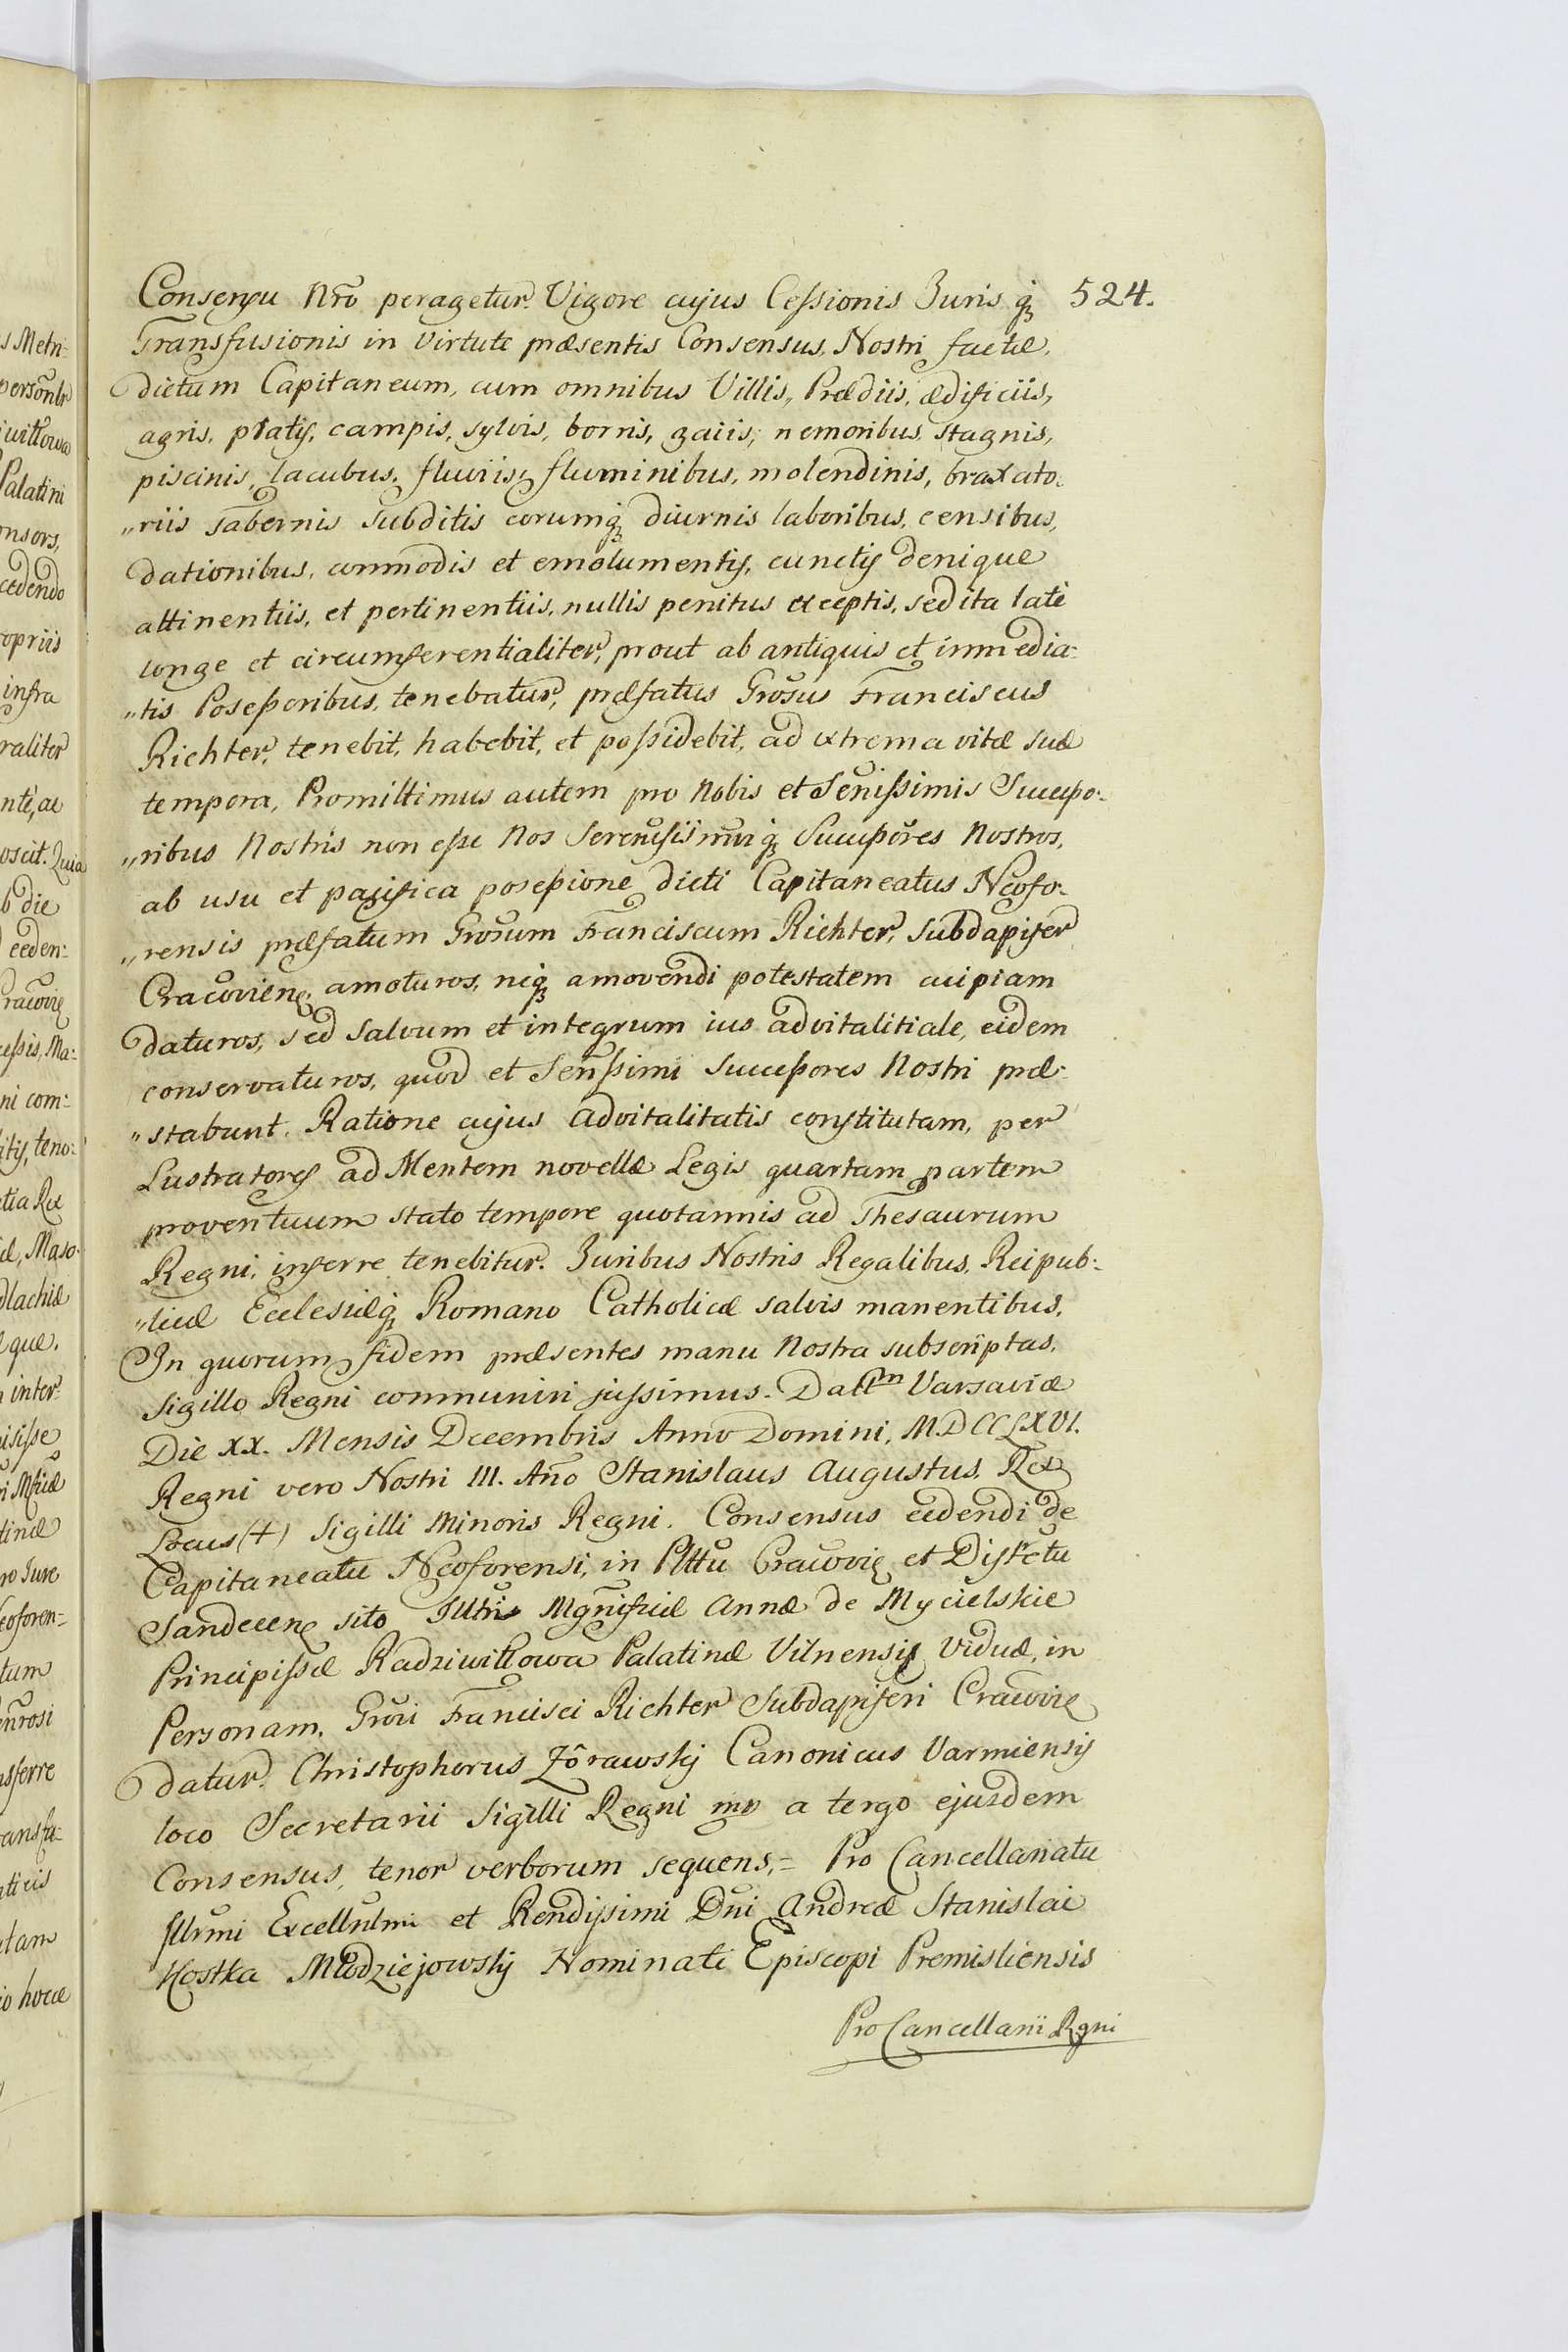 524.
Consensu Nr̃o peragetur. Vigore cujus Cessionis Juris q̃
Transfusionis in Virtute præsentis Consensus, Nostri factæ,
dictum Capitaneum, cum omnibus Villis, Prædiis, ædificiis,
agris, pratis, campis, sylvis, borris, gaiis, nemoribus, stagnis,
piscinis, lacubus, fluviis, fluminibus, molendinis, braxato-
"riis Tabernis Subditis eorumq̃ diurnis laboribus, censibus,
dationibus, commodis et emolumentis, cunctis denique
attinentiis, et pertinentiis, nullis penitus exceptis, sed ita late
longe et circumferentialiter, prout ab antiquis et immedia-
"tis Possessoribus, tenebatur, præfatus Grosus Franciscus
Richter, tenebit, habebit, et possidebit, ad extrema vitæ suæ
tempora, Promittimus autem pro Nobis et Señissimis Successo-
"ribus Nostris non esse Nos Serenissimosq̃ Successores Nostros,
ab usu et pacifica possessione dicti Capitaneatus Neofo-
"rensis præfatum Grosum Franciscum Richter, Subdapiferũ
Cracovien̨, amoturos, neq̃ amovendi potestatem cuipiam
daturos, sed salvum et integrum ius advitalitiale, eidem
conservaturos, quod et Señssimi Successores Nostri præ-
"stabunt. Ratione cujus advitalitatis constitutam, per
Lustratores ad Mentem novellæ Legis quartam partem
proventuum stato tempore quotannis ad Thesaurum
Regni, inferre tenebitur. Juribus Nostris Regalibus, Reipub-
"licæ Ecclesiæq̃ Romano Catholicæ salvis manentibus,
In quorum fidem præsentes manu Nostra subscriptas,
Sigillo Regni communiri jussimus. Dattm Varsaviæ
Die XX. Mensis Decembris Anno Domini, MDCCLXVI.
Regni vero Nostri III. Año Stanislaus Augustus, Rex
Locus (+) Sigilli Minoris Regni. Consensus cedendi de
Capitaneatu Neoforensi, in Plttũ Cracovię et Districtu
Sandecen̨ sito Illtris Mgnificæ Annæ de Mycielskie
Principissæ Radziwiłłowa Palatinæ Vilnensis Viduæ, in
Personam, Grosi Francisci Richter Subdapiferi Cracovię
datur. Christophorus Zôrawskj Canonicus Varmiensis
loco Secretarii Sigilli Regni mp a tergo ejusdem
Consensus, tenor verborum sequens,= Pro Cancellariatu
Illrmi Excellntmi et Rendissimi Dñi Andreæ Stanislai
Kostka Młodziejowskj Nominati Episcopi Premisliensis
Pro Cancellarii Rgni